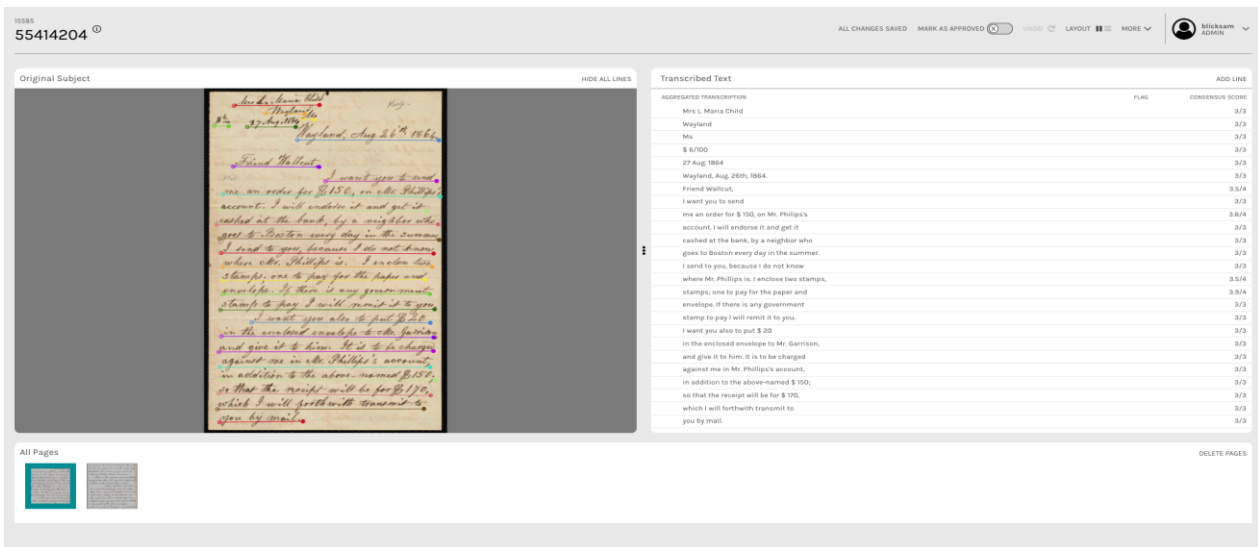 15585
55414204
ALL CHANGES SAVED
MARK AS APPROVED
UNDO
LAYOUT
MORE
blicksam
ADMIN
Original Subject
HIDE ALL LINES
Mrs L. Maria Child
Wayland
27 Aug. 1864
Wayland, Aug 26th 1864.
Friend Wallcut,
I want you to send
me an order for $150, on Mr. Phillips's
account. I will endorse it and get it
cashed at the bank, by a neighbor who
goes to Boston every day in the summer
I send to you, because I do not know
where Mr. Phillips is. I enclose two
stamps; one to pay for the paper and
envelope. If there is any government
stamp to pay I will remit it to you
I want you also to put $20
in the enclosed envelope to Mr. Garrison
and give it to him. It is to be charged
against me in Mr. Phillips's account,
in addition to the above-named $150;
so that the receipt will be for $170,
which I will forthwith transmit to
you by mail.
Transcribed Text
ADD LINE
AGGREGATED TRANSCRIPTION
FLAG
CONSENSUS SCORE
Mrs L. Maria Child 3/3
Wayland 3/3
Ms 3/3
$ 6/100 3/3
27 Aug. 1864 3/3
Wayland, Aug. 26th, 1864. 3/3
Friend Wallcut, 3.5/4
I want you to send 3/3
me an order for $ 150, on Mr. Philips's 3.8/4
account. I will endorse it and get it 3/3
cashed at the bank, by a neighbor who 3/3
goes to Boston every day in the summer. 3/3
I send to you, because I do not know 3/3
where Mr. Phillips is. I enclose two stamps, 3.5/4
stamps; one to pay for the paper and 3.9/4
envelope. If there is any government 3/3
stamp to pay I will remit it to you. 3/3
I want you also to put $ 20 3/3
in the enclosed envelope to Mr. Garrison, 3/3
and give it to him. It is to be charged 3/3
against me in Mr. Phillips's account, 3/3
in addition to the above-named $ 150; 3/3
so that the receipt will be for $ 170, 3/3
which I will forthwith transmit to 3/3
you by mail. 3/3
All Pages
DELETE PAGES